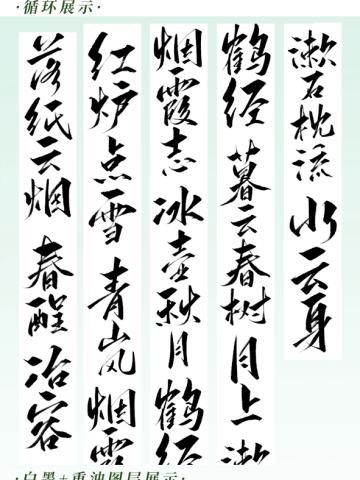 ·循环展示·
漱石枕流水云身
鹤经暮云春树月上
烟霞志冰壶秋月鹤经
红炉点雪青岚烟霞
落纸云烟春醒冶容
·白墨+重油图层展示·